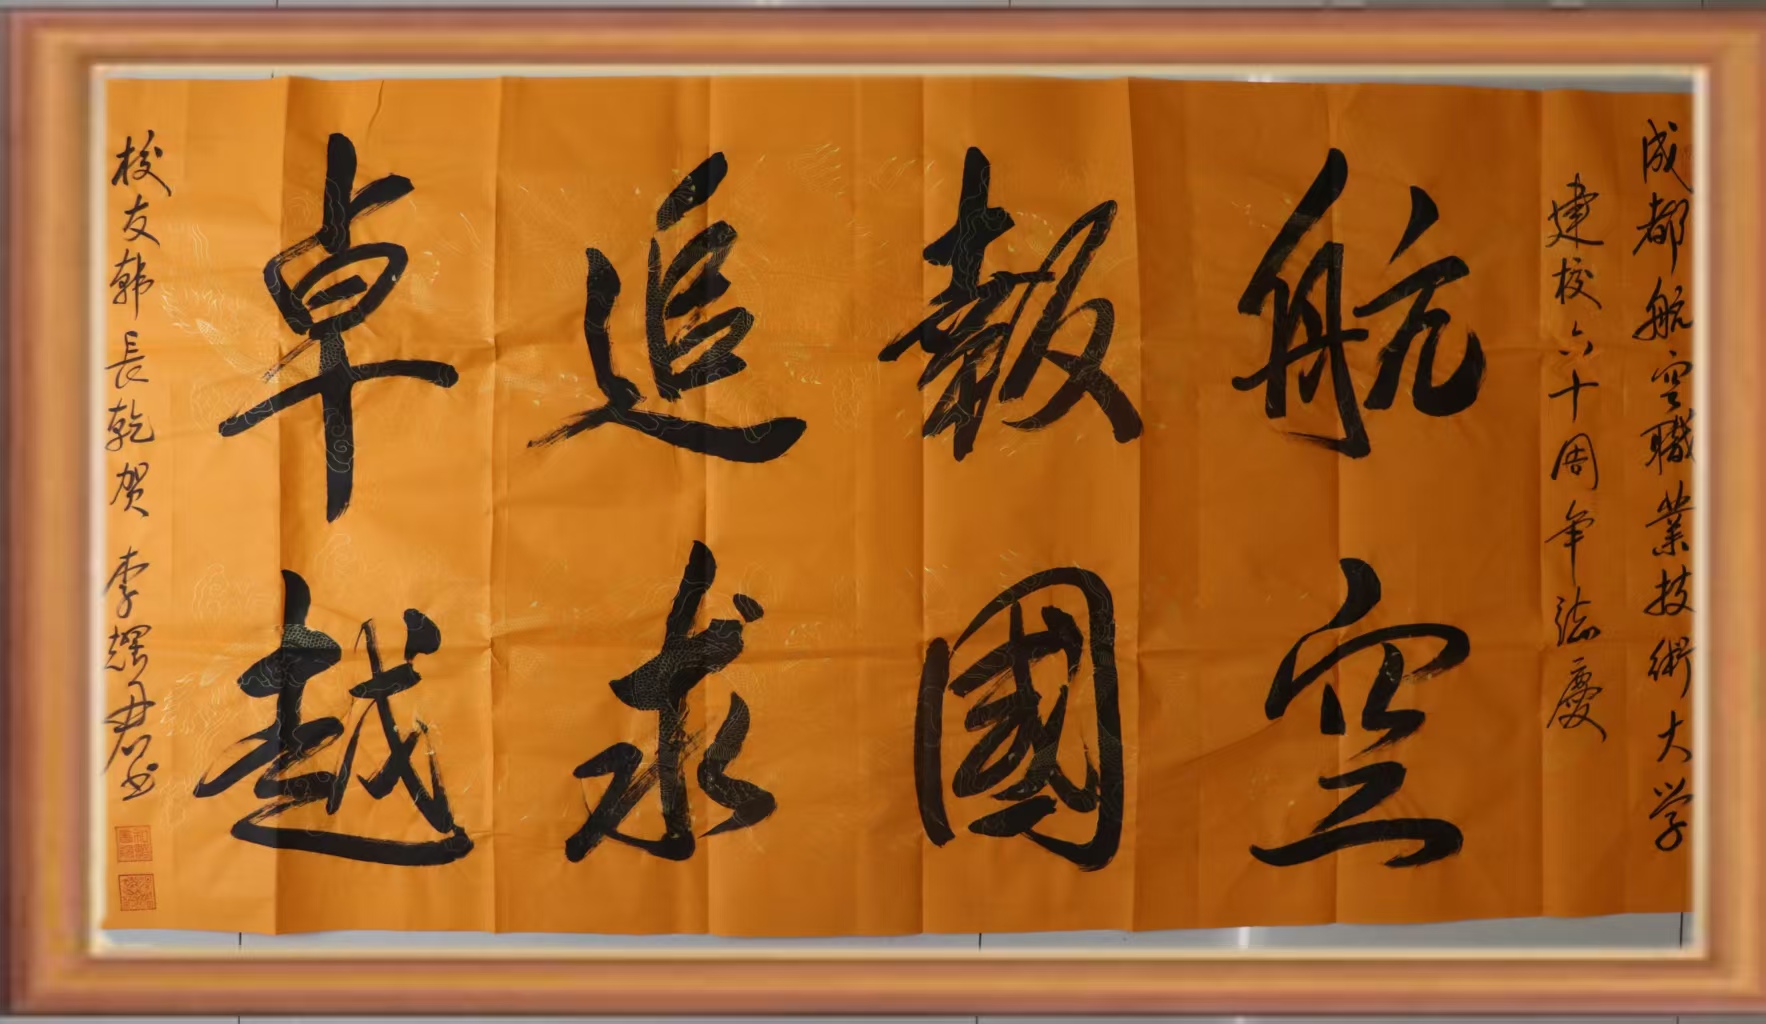 成都航空職業技術大学
建校六十周年誌慶
航空
報國
追求
卓越
校友韩長乾贺 李耀君书